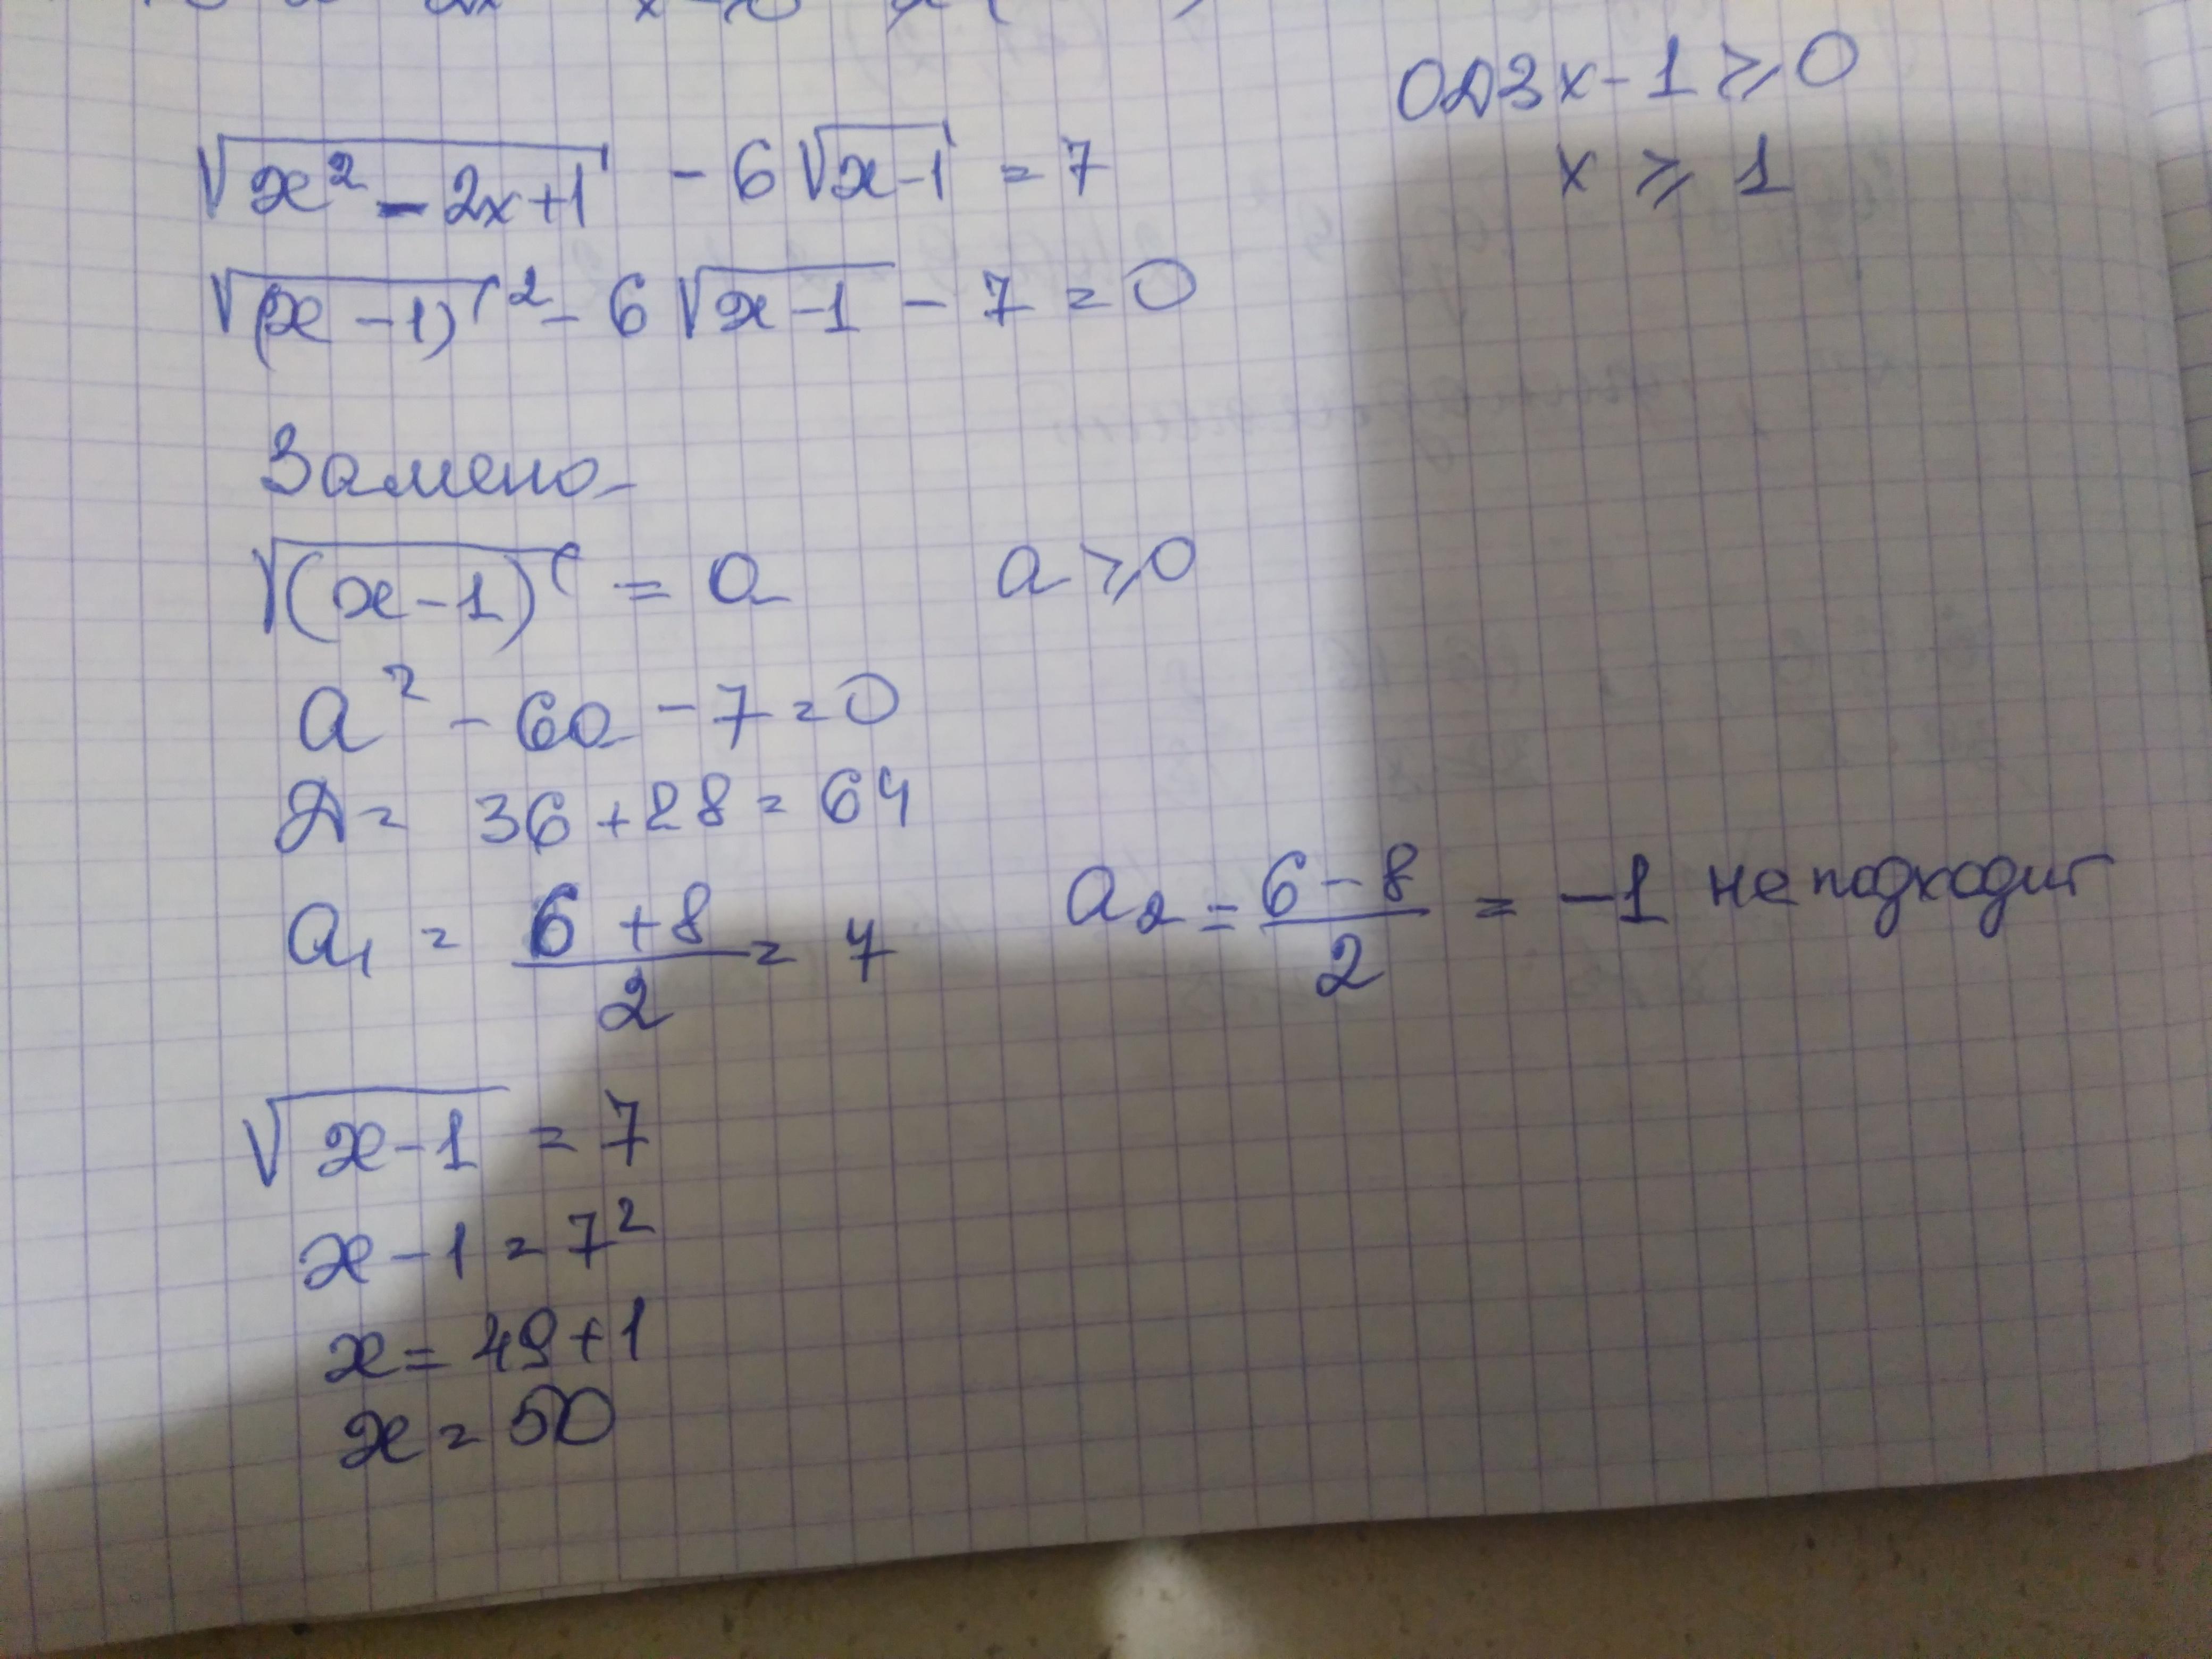 ОДЗ x-1 ≥ 0
x ≥ 1
√(x² - 2x+1) - 6√(x-1) = 7
√(x-1)² - 6√(x-1) - 7 = 0
Замена
√(x-1) = a a ≥ 0
a² - 6a - 7 = 0
D = 36 + 28 = 64
a₁ = (6 + 8)/2 = 7 a₂ = (6 - 8)/2 = -1 не подходит
√(x-1) = 7
x - 1 = 7²
x = 49 + 1
x = 50